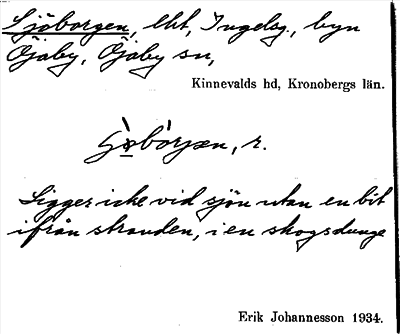 Sjöborgen, lht, Ingelsg., byn
Öjaby, Öjaby sn,
Kinnevalds hd, Kronobergs län.
r.
Ligger icke vid sjön utan en bit
ifrån stranden, i en skogsdunge
Erik Johannesson 1934.